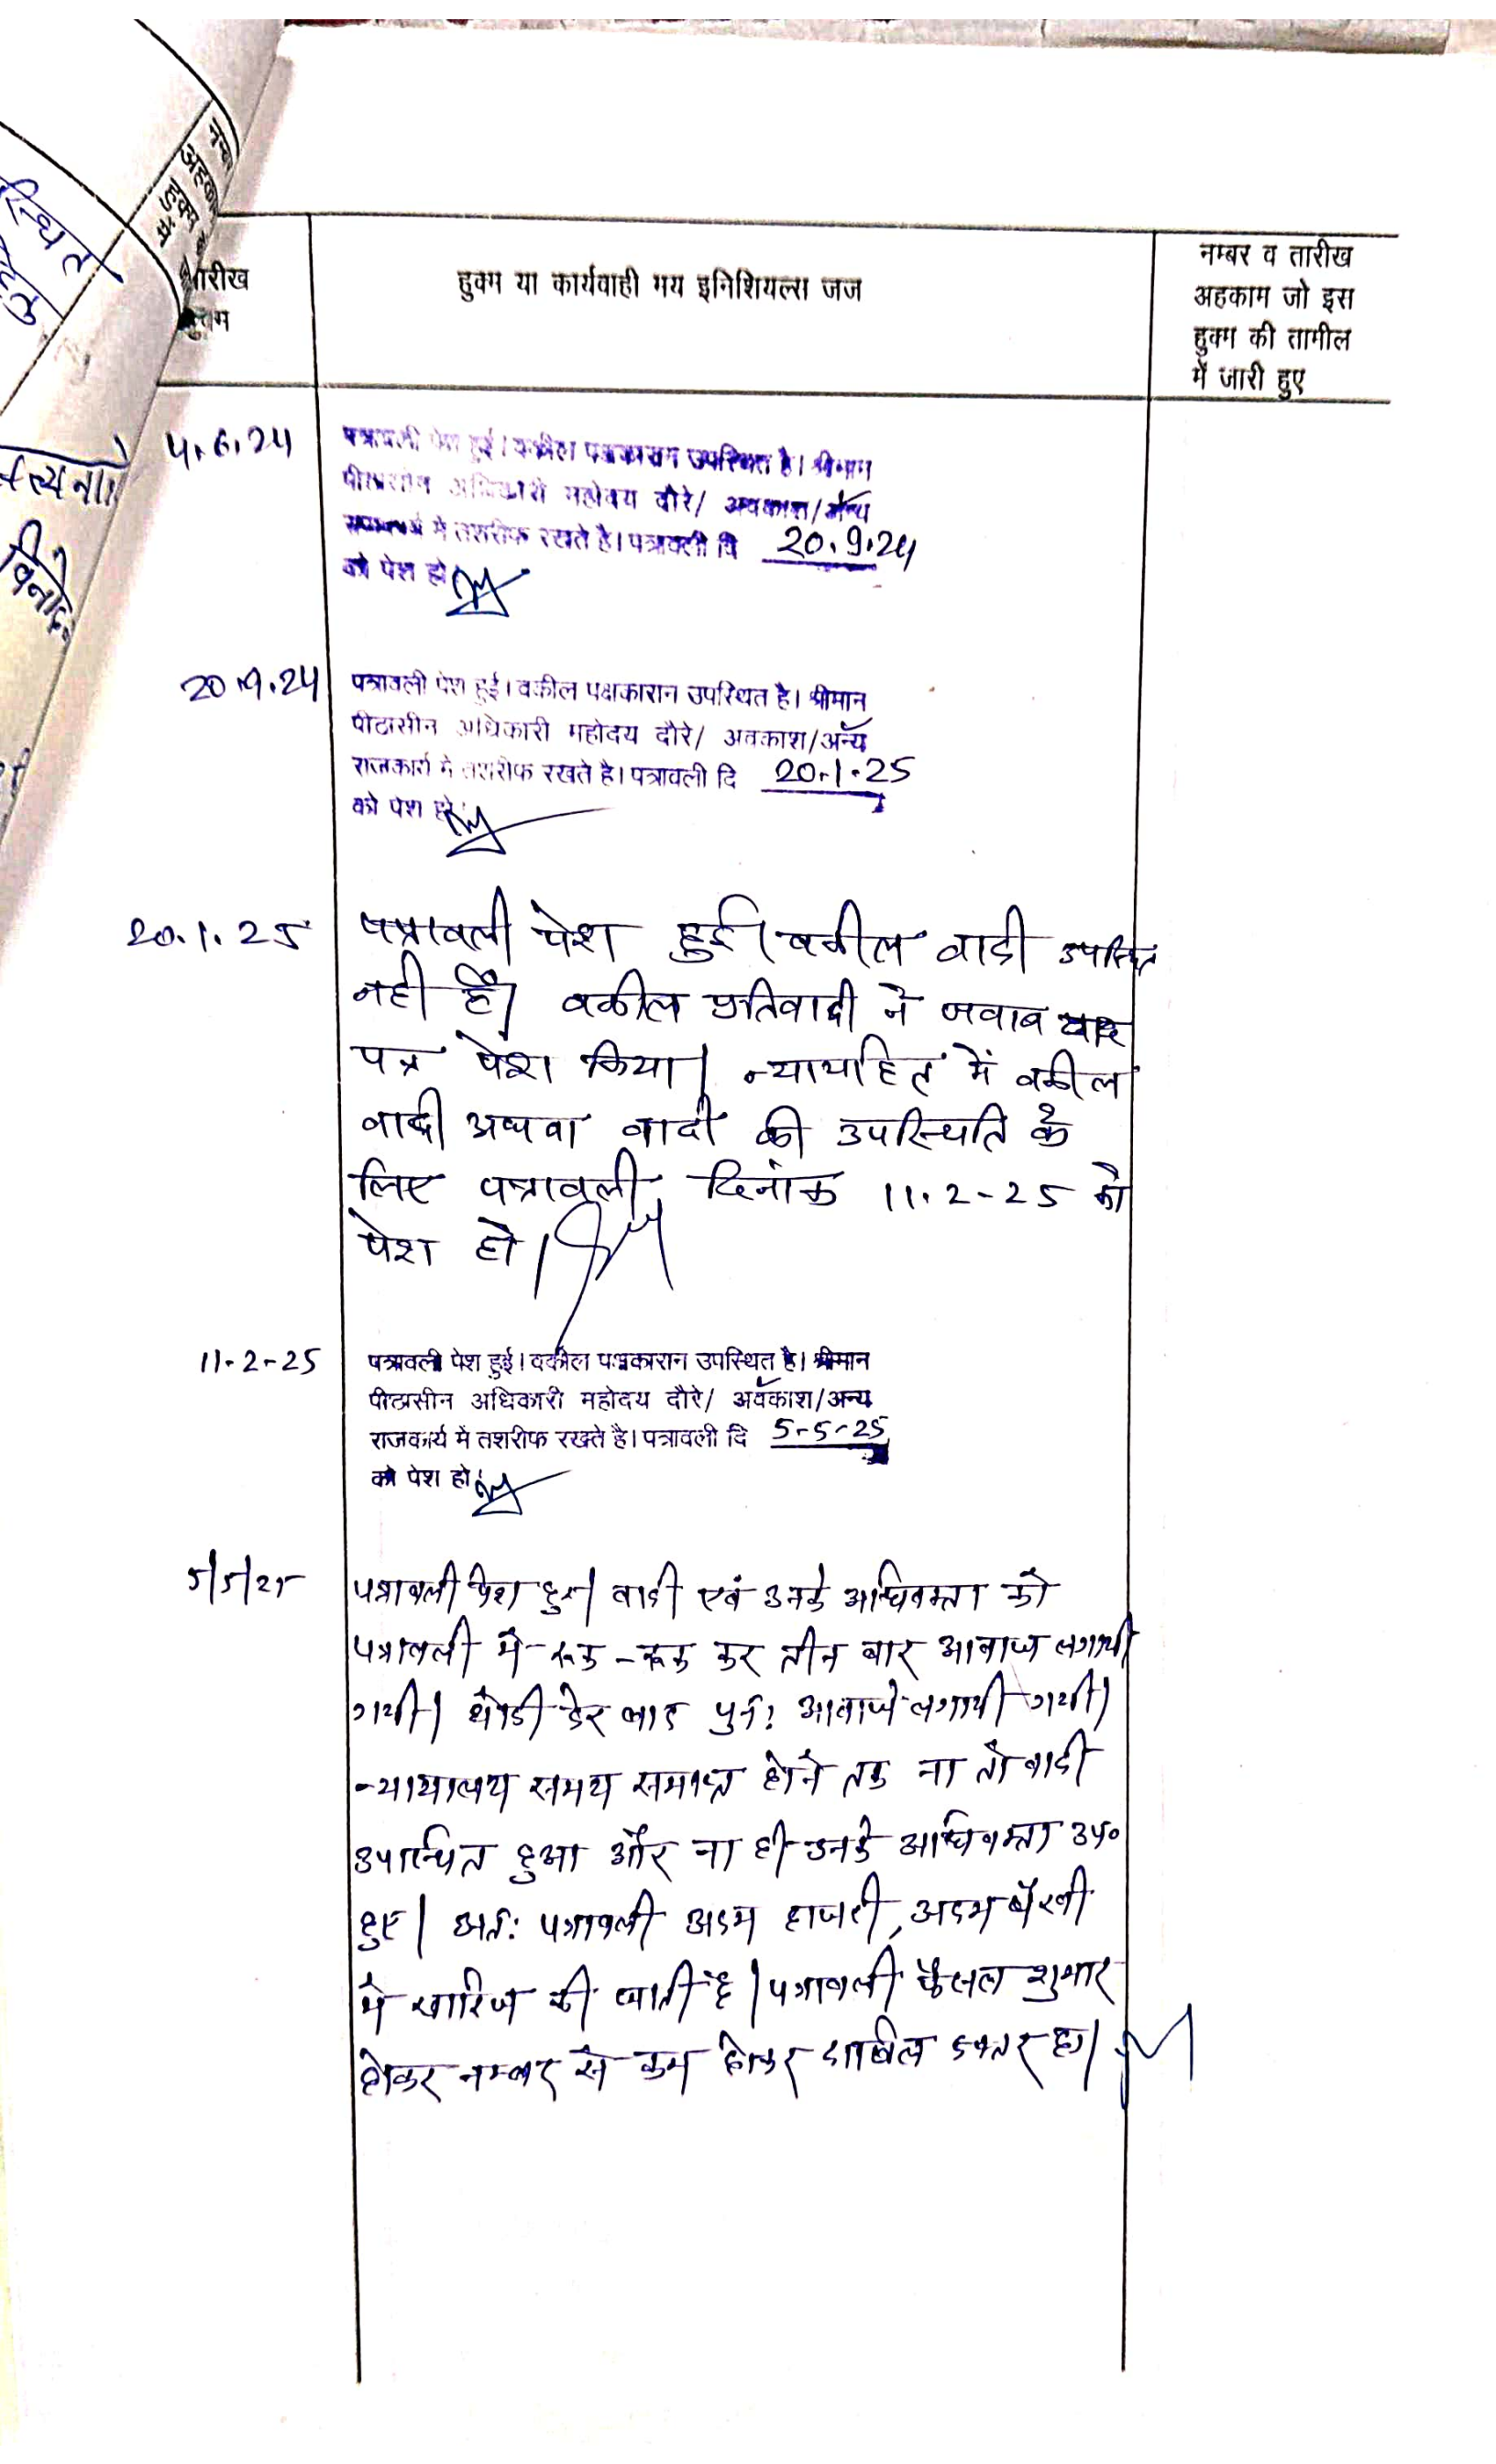 नम्ब
अहका
हुक्म
में
स्थित
हेतु
विनोद
तारीख
हुक्म
हुक्म या कार्यवाही मय इनिशियल्स जज
नम्बर व तारीख
अहकाम जो इस
हुक्म की तामील
में जारी हुए
4.6.24
पत्रावली पेश हुई। वकील पक्षकारान उपस्थित है। श्रीमान
पीठासीन अधिकारी महोदय दौरे/ अवकाश/अन्य
राजकार्य मे तशरीफ रखते है। पत्रावली दि 20.9.24
को पेश हो
20.9.24
पत्रावली पेश हुई। वकील पक्षकारान उपस्थित है। श्रीमान
पीठासीन अधिकारी महोदय दौरे/ अवकाश/अन्य
राजकार्य मे तशरीफ रखते है। पत्रावली दि 20.1.25
को पेश हो
20.1.25
पत्रावली पेश हुई। वकील वादी उपस्थित
नही है। वकील प्रतिवादी ने जवाब वाद
पत्र पेश किया। न्यायहित में वकील
वादी अथवा वादी की उपस्थिति के
लिए पत्रावली दिनांक 11.2-25 को
पेश हो।
11-2-25
पत्रावली पेश हुई। वकील पक्षकारान उपस्थित है। श्रीमान
पीठासीन अधिकारी महोदय दौरे/ अवकाश/अन्य
राजकार्य मे तशरीफ रखते है। पत्रावली दि 5-5-25
को पेश हो
5/5/25
पत्रावली पेश हुई। वादी एवं उनके अधिवक्ता को
पत्रावली मे रूक-रूक कर तीन बार आवाज लगायी
गयी। थोडी देर बाद पुन: आवाजे लगायी गयी।
न्यायालय समय समाप्त होने तक ना तो वादी
उपस्थित हुआ और ना ही उनके अधिवक्ता उप०
हुए। अत: पत्रावली अदम हाजरी, अदम पैरवी
मे खारिज की जाती है। पत्रावली फैसल शुमार
होकर नम्बर से कम होकर दाखिल दफ्तर हो।